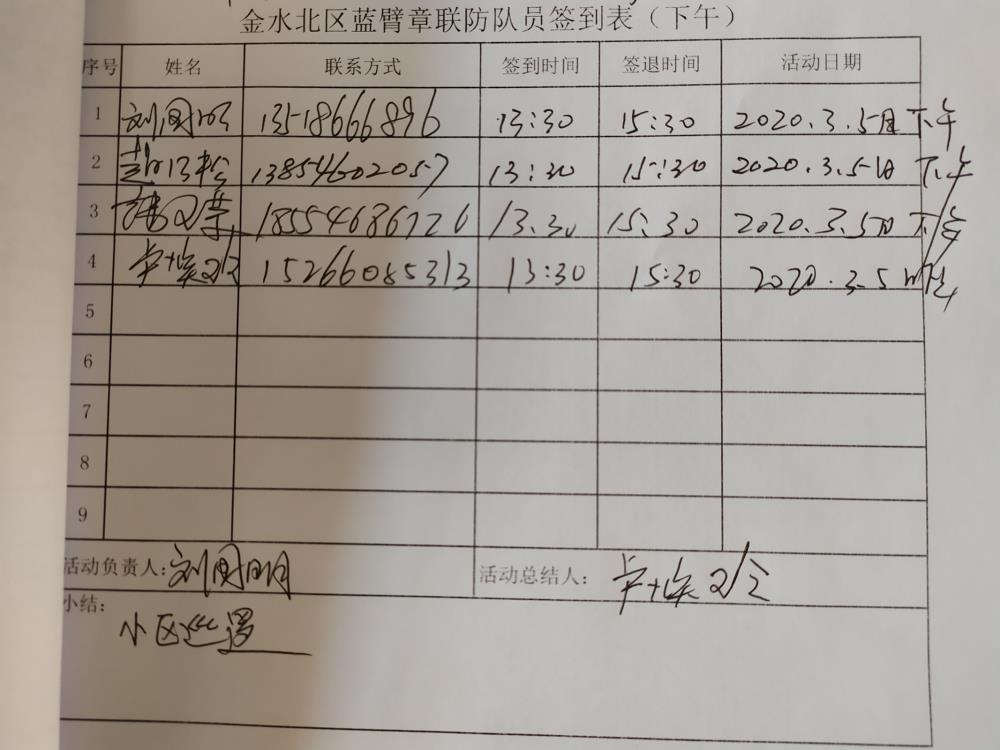 金水北区蓝臂章联防队员签到表（下午）
序号 姓名 联系方式 签到时间 签退时间 活动日期
1 刘国明 13518666896 13:30 15:30 2020.3.5日下午
2 13854602057 13:30 15:30 2020.3.5日下午
3 18554686726 13.30 15:30 2020.3.5日下午
4 15266085313 13:30 15:30 2020.3.5
5
6
7
8
9
活动负责人：刘国明 活动总结人：
小结：
小区巡逻